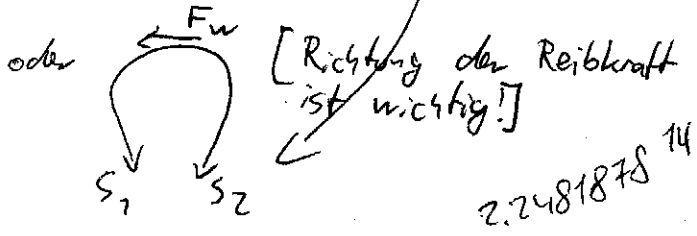 F_W
oder [Richtung der Reibkraft
ist wichtig!]
S_1 S_2
2.2481878^14